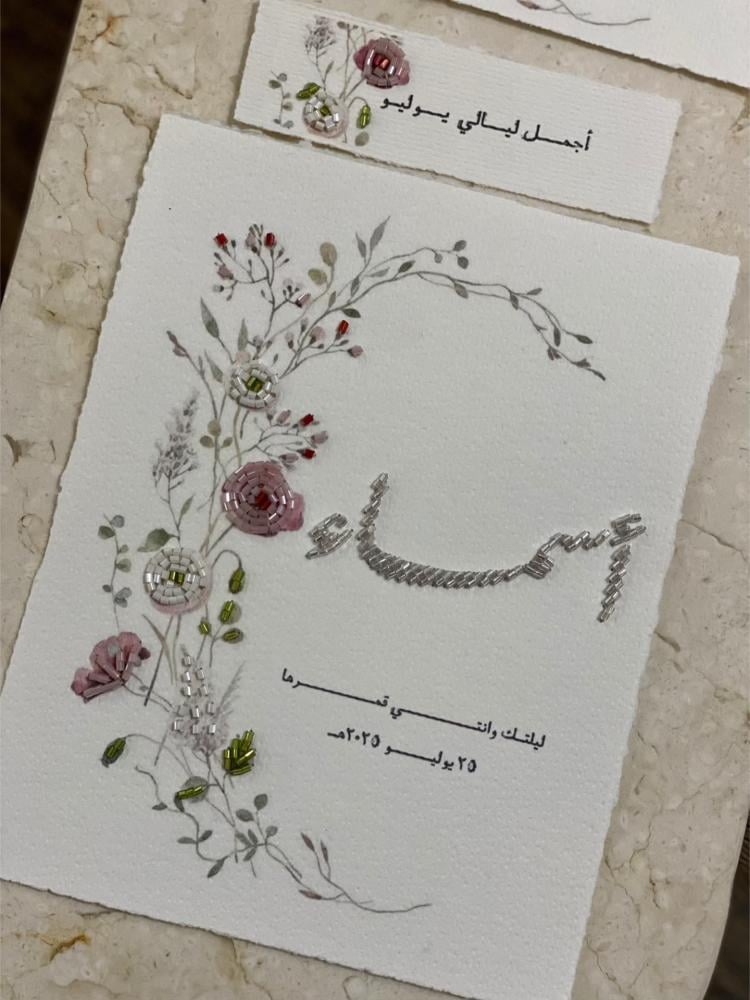 أجمل ليالي يوليو
أسماء
ليلتك وانتي قمرها
٢٥ يوليو ٢٠٢٥هـ